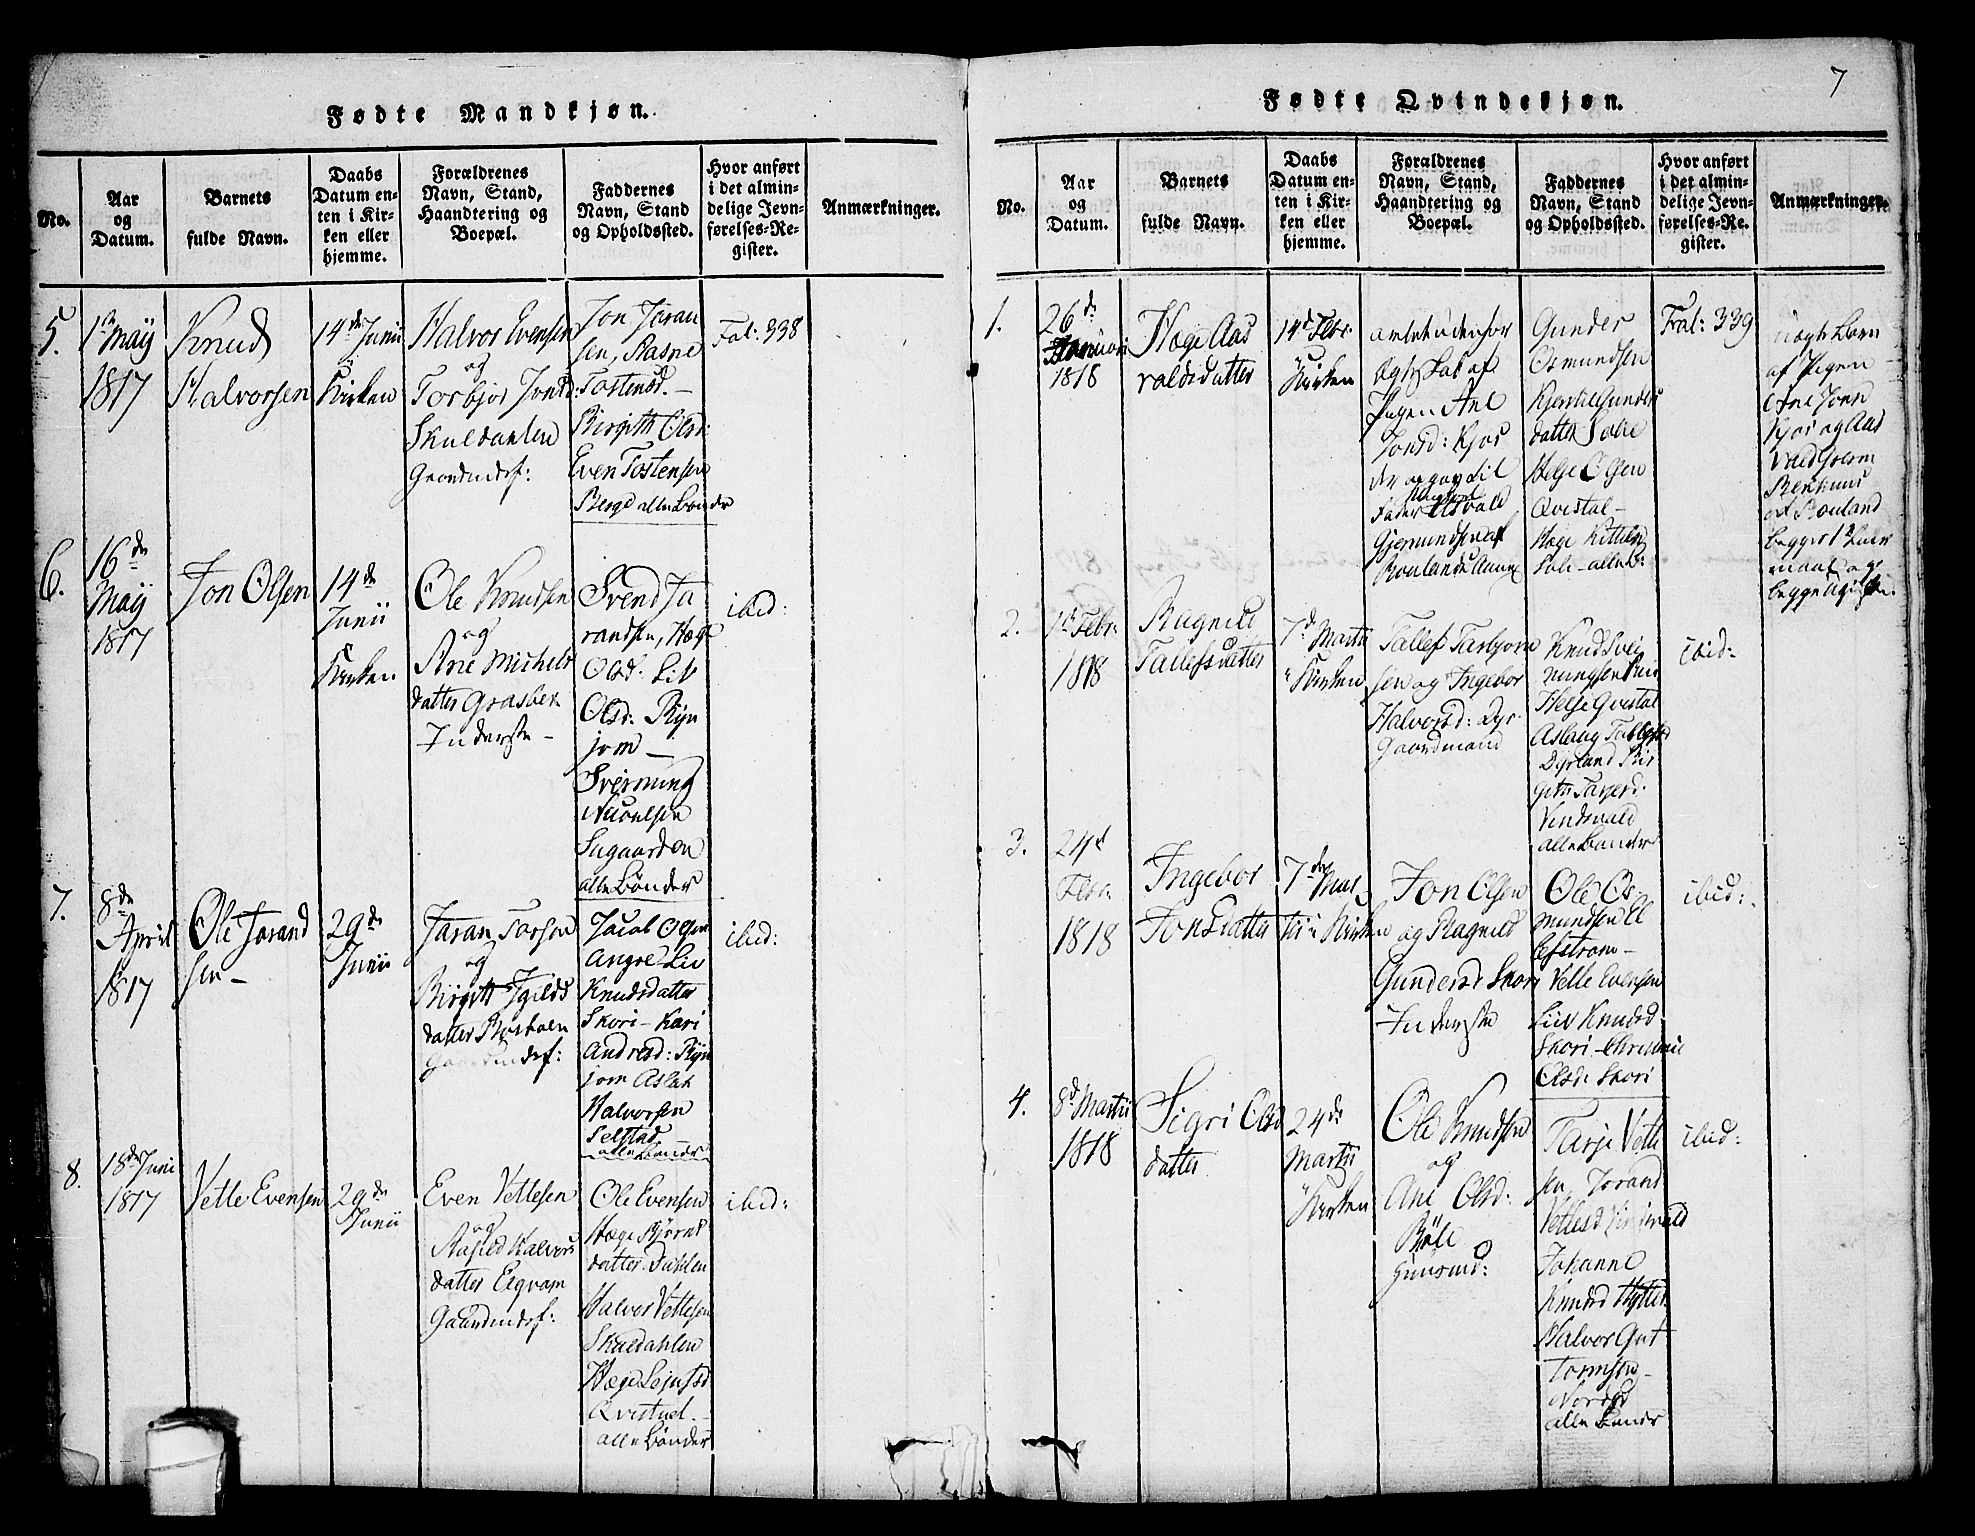 Fødte Mandkjøn.
No.
Aar
og
Datum.
Barnets
fulde Navn.
Daabs
Datum en-
ten i Kir-
ken eller
hjemme.
Forældrenes
Navn, Stand,
Haandtering og
Boepæl.
Faddernes
Navn, Stand
og Opholdssted.
Hvor anført
i det almin-
delige Jevn-
førelses-Re-
gister.
Anmærkninger.
5.
1de Maÿ
1817
Knud
Halvorsen
14de Junii
Kirken
Halvor Evensen
og
Torbjor Jonsd:
Skuldahlen
Gaardmdsf:
Jon Jøran
sen, Rasne
Tostensd. –
Birgith Olsd:
Even Tostensen
Berge alle Bønder
Fol: 338
6.
16de
Maÿ
1817
Jon Olsen
14de
Junii
Kirken
Ole Knudsen
og
Ane Michels
datter Grasbek
Inderste –
Svend Jø
randsen, Hæge
Olsd: Liv
Olsd: Rÿn
jom –
Sveinung
Sugaarden
alle Bønder
ibid:
7.
8de
April
1817
Ole Jørand
sen –
29de
Junii
Jøran
og
Birgith
datter
Gaardmdsf:
Jacob Olsen
Angre – Liv
Knudsdatter
Skori – Kari
Andresd: Rÿn
jom Aslak
Halvorsen
Selstad
alle Bønder
ibid:
8.
18de Juni
1817
Vetle Evensen
29de
Junii
Even Vetlesen
og
Aasild Halvors
datter Eegvam
Gaardmdsf:
Ole Evensen
Hæge Bjørns
datter Dahlen
Halvor Vetlesen
Skuldahlen
Hæge
Qvistad. –
alle Bønder
ibid:
7
Fødte Qvindekjøn.
No.
Aar
og
Datum.
Barnets
fulde Navn.
Daabs
Datum en-
ten i Kir-
ken eller
hjemme.
Forældrenes
Navn, Stand,
Haandtering og
Boepæl.
Faddernes
Navn, Stand
og Opholdssted.
Hvor anført
i det almin-
delige Jevn-
førelses-Re-
gister.
Anmærkninger.
1.
26de
Januari
1818
Hæge Aas
valdsdatter
14de Febr:
i Kirken
avlet udenfor
Egteskab af
Pigen Ane
Jonsd: Kjos
der opgav til
Fader Osvald
Gjermundsen af
Gunder
Osmundsen
Kjerstil Gunders
datter Solie
Helge Olsen
Qvistal –
Hæge Kittels
Fol: 339
uægte Barn
af Pigen
Ane Jonsd
Kjos og Aas
vald Gjerm
af Rouland
begges 1te Leier
maal og
begge
2.
1de Febr:
1818
Ragnild
Tallefsdatter
7de Martii
i Kirken
Tallef Torbjørn
sen og Ingebor
Halvorsd: Dyr-
Gaardmand
Knud Svei
nungsen
Helje Qvistal
Aslaug Tallefsd
Dyrland Bir
gith Tarjesd.
Vindsvald
alle Bønder
ibid:
3.
24de
Febr:
1818
Ingebor
Jonsdatter
7de Mar
tii i Kirken
Jon Olsen
og Ragnild
Gundersd Skori
Inderste
Ole Os-
mundsen El
efstrøm –
Vetle Evensen
Liiv Knudsd
Skori –
Olsd: Skori
ibid:
4.
8de Martii
1818
Sigri Ols
datter
24de
Martii
i Kirken
Ole Knudsen
og
Ane Olsd:
Bøle
Huusmd:
Tarje Vetle
sen, Jorand
Vetlesd Vindsvald
Johanne
Knudsd Hytter
Halvor Gut
tormsen –
alle Bønder
ibid: